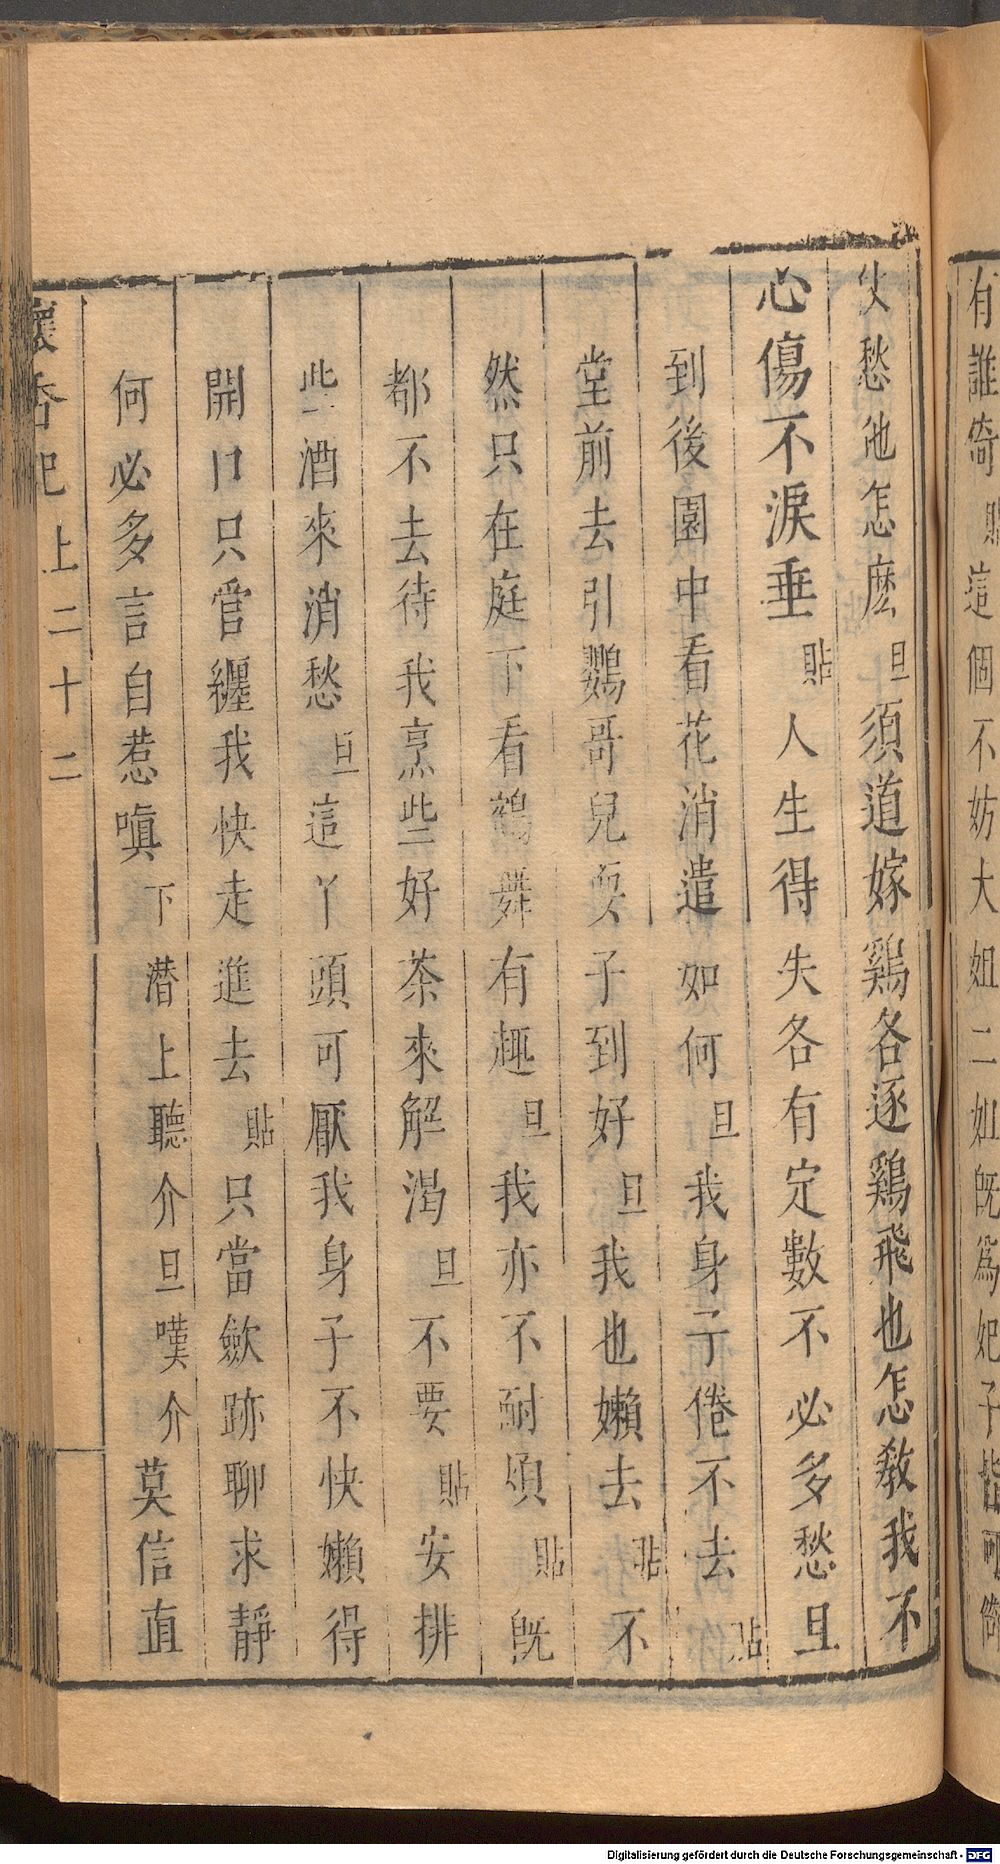 有誰倚貼這個不妨大姐二姐旣爲妃子皆可
愁他怎麽旦須道嫁鷄各逐鷄飛也怎教我不
心傷不淚垂貼人生得失各有定數不必多愁旦
到後園中看花消遣如何旦我身子倦不去貼
堂前去引鸚哥兒耍子到好旦我也懶去貼不
然只在庭下看鶴舞有趣旦我亦不耐煩貼旣
都不去待我烹些好茶來解渴旦不要貼安排
些酒來消愁旦這丫頭可厭我身子不快懶得
開口只管纏我快走進去貼只當歛跡聊求靜
何必多言自惹嗔下潜上聽介旦嘆介莫信直
懷香記上二十二
Digitalisierung gefördert durch die Deutsche Forschungsgemeinschaft - DFG